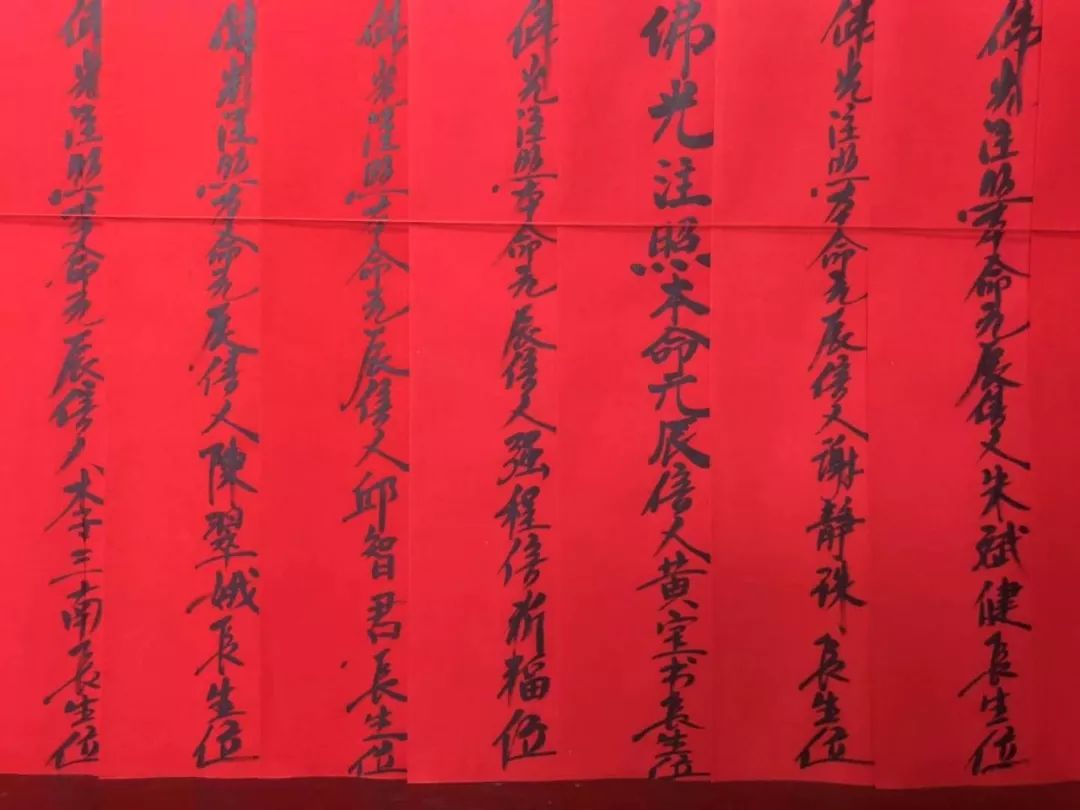 佛光注照本命元辰信人朱斌健長生位
佛光注照本命元辰信人謝靜珠長生位
佛光注照本命元辰信人黄宝书長生位
佛光注照本命元辰信人强程信祈福位
佛光注照本命元辰信人邱智君長生位
佛光注照本命元辰信人陳翠娥長生位
佛光注照本命元辰信人李三南長生位